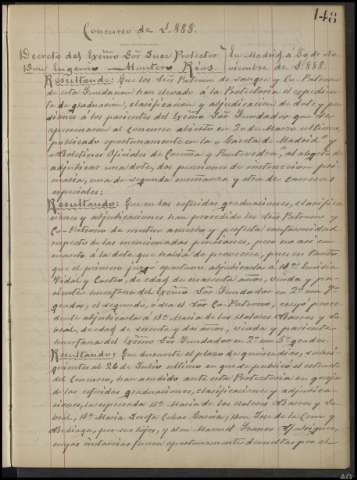 148
Concurso de 1.888.
Decreto del Exmo Sor Juez Protector
Don Eugenio Montero Ríos.
En Madrid, a 30 de No
viembre de 1.888.
Resultando: Que los Sres Patrono de sangre y Co-Patrono
de esta Fundación han elevado á la Protectoría el espedien
te de graduación, clasificación y adjudicación de dote y pen
siones á los parientes del Exmo Sor Fundador que se
presentaron al concurso abierto en 20 de Marzo último,
publicado oportunamente en la "Gaceta de Madrid" y
"Boletines Oficiales de Coruña y Pontevedra", al objeto de
adjudicar una dote, dos pensiones de instrucción pri
maria, una de segunda enseñanza y otra de carreras
especiales:
Resultando: Que en las referidas graduaciones, clasifica
ciones y adjudicaciones han procedido los Sres Patrono y
Co-Patrono de mutuo acuerdo y perfecta conformidad
respecto de las mencionadas pensiones, pero no así en
cuanto á la dote que había de proveerse, pues en tanto
que el primero juzgó oportuno adjudicarla á Da
de edad de cuarenta años, viuda y pa
rienta del Exmo Sor Fundador en 2º con
grados, el segundo, ó sea el Sor Co-Patrono, creyó proce
dente adjudicarla á Da María de los Dolores
de edad de sesenta y dos años, viuda y parienta
del Exmo Sor Fundador en 2º con 5º grados:
Resultando: Que durante el plazo de quince días, subsi
guientes al 26 de Julio último en que se publicó el estado
del Concurso, han acudido ante esta Protectoría en queja
de las referidas graduaciones, clasificaciones y adjudica
ciones, la espresada Da María de los Dolores
Da María Josefa García, Don José de la
por sus hijos, y Don Manuel Franco
cuyas instancias fueron oportunamente devueltas por el